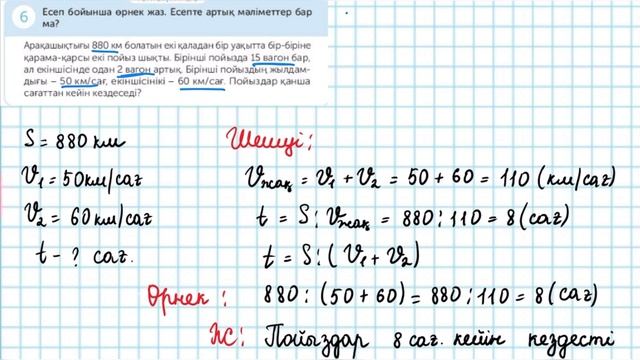 6 Есеп бойынша өрнек жаз. Есепте артық мәліметтер бар
ма?
Арақашықтығы 880 км болатын екі қаладан бір уақытта бір-біріне
қарама-қарсы екі пойыз шықты. Бірінші пойызда 15 вагон бар,
ал екіншісінде одан 2 вагон артық. Бірінші пойыздың жылдам-
дығы – 50 км/сағ, екіншісінікі – 60 км/сағ. Пойыздар қанша
сағаттан кейін кездеседі?
S = 880 км
V₁ = 50 км/сағ
V₂ = 60 км/сағ
t - ? сағ.
Шешуі:
Vжақ = V₁ + V₂ = 50 + 60 = 110 (км/сағ)
t = S : Vжақ = 880 : 110 = 8 (сағ)
t = S : (V₁ + V₂)
Өрнек : 880 : (50 + 60) = 880 : 110 = 8 (сағ)
Ж: Пойыздар 8 сағ. кейін кездесті